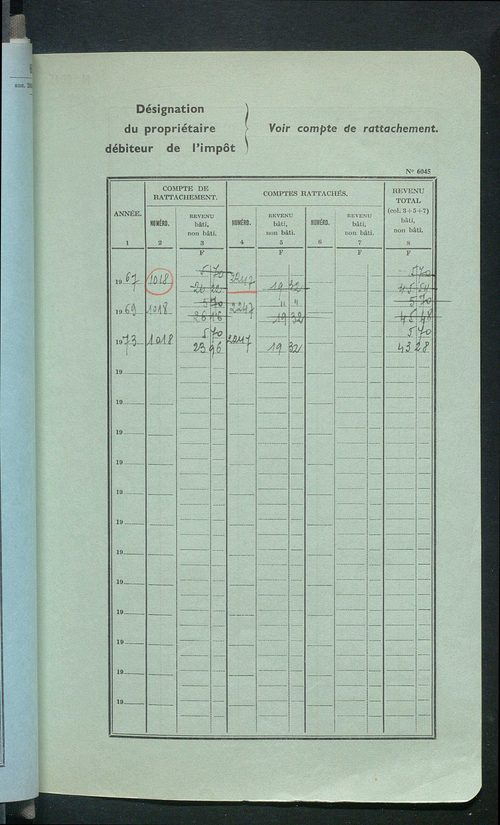 Désignation
du propriétaire
débiteur de l'impôt
Voir compte de rattachement.
N° 6045
ANNÉE.
COMPTE DE
RATTACHEMENT.
COMPTES RATTACHÉS.
REVENU
TOTAL
(col. 3+5+7)
bâti,
non bâti.
NUMÉRO.
REVENU
bâti,
non bâti.
NUMÉRO.
REVENU
bâti,
non bâti.
NUMÉRO.
REVENU
bâti,
non bâti.
1 2 3 4 5 6 7 8
F F F F
5 70 5 70
1967 1018 2247 19 32
5 70 " " 5 70
1969 1018 26 16 2247 19 32 45 48
5 70 5 70
1973 1018 23 96 2247 19 32 43 28
19
19
19
19
19
19
19
19
19
19
19
19